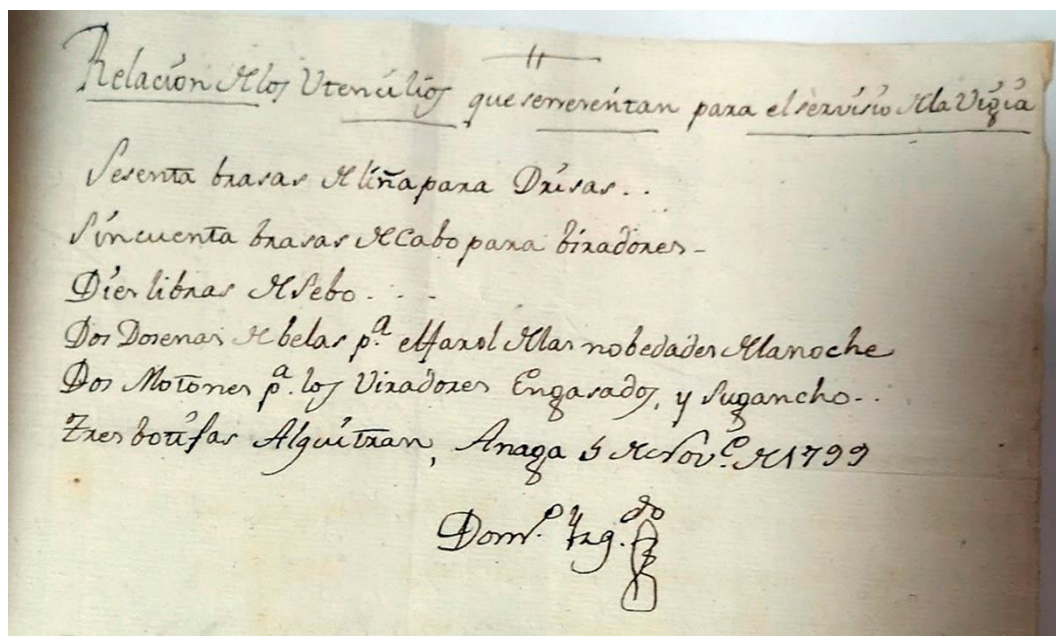 Relación de los Utencilios que se neresitan para el servisio de la Vigia
Sesenta brasas de liña para Drisas..
Sincuenta brasas de Cabo para biradores-
Dies libras de Sebo...
Dos Dosenas de belas p.ª el farol de las nobedades de la noche
Dos Motones p.ª los Viradores Engasados, y Sugancho..
Tres botifas Alquitran, Anaga 5 de Nov.e de 1799
Dom.o